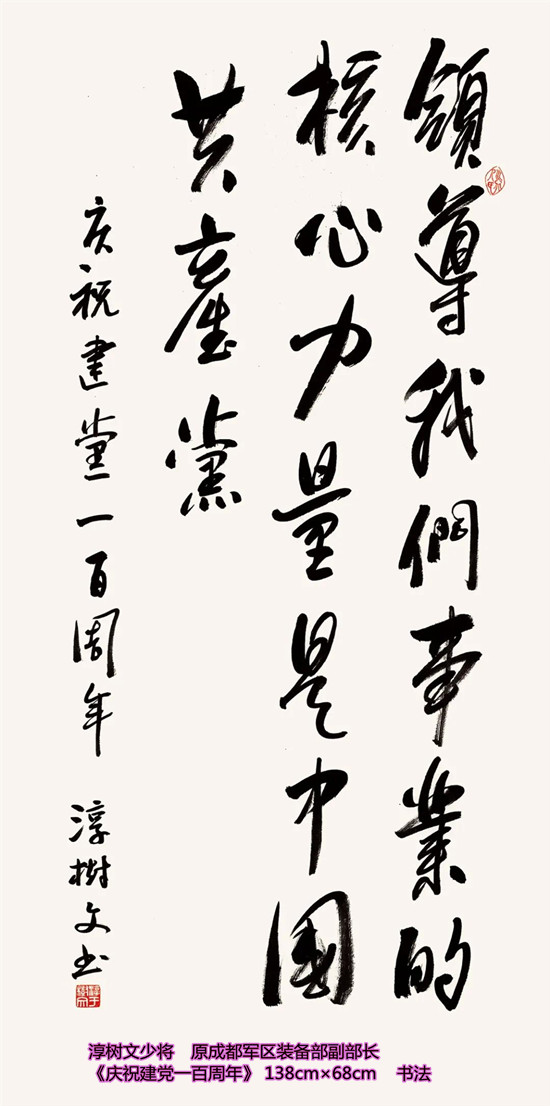 領導我們事業的
核心力量是中國
共產黨
庆祝建党一百周年 淳樹文书
淳树文少将 原成都军区装备部副部长
《庆祝建党一百周年》 138cm×68cm 书法